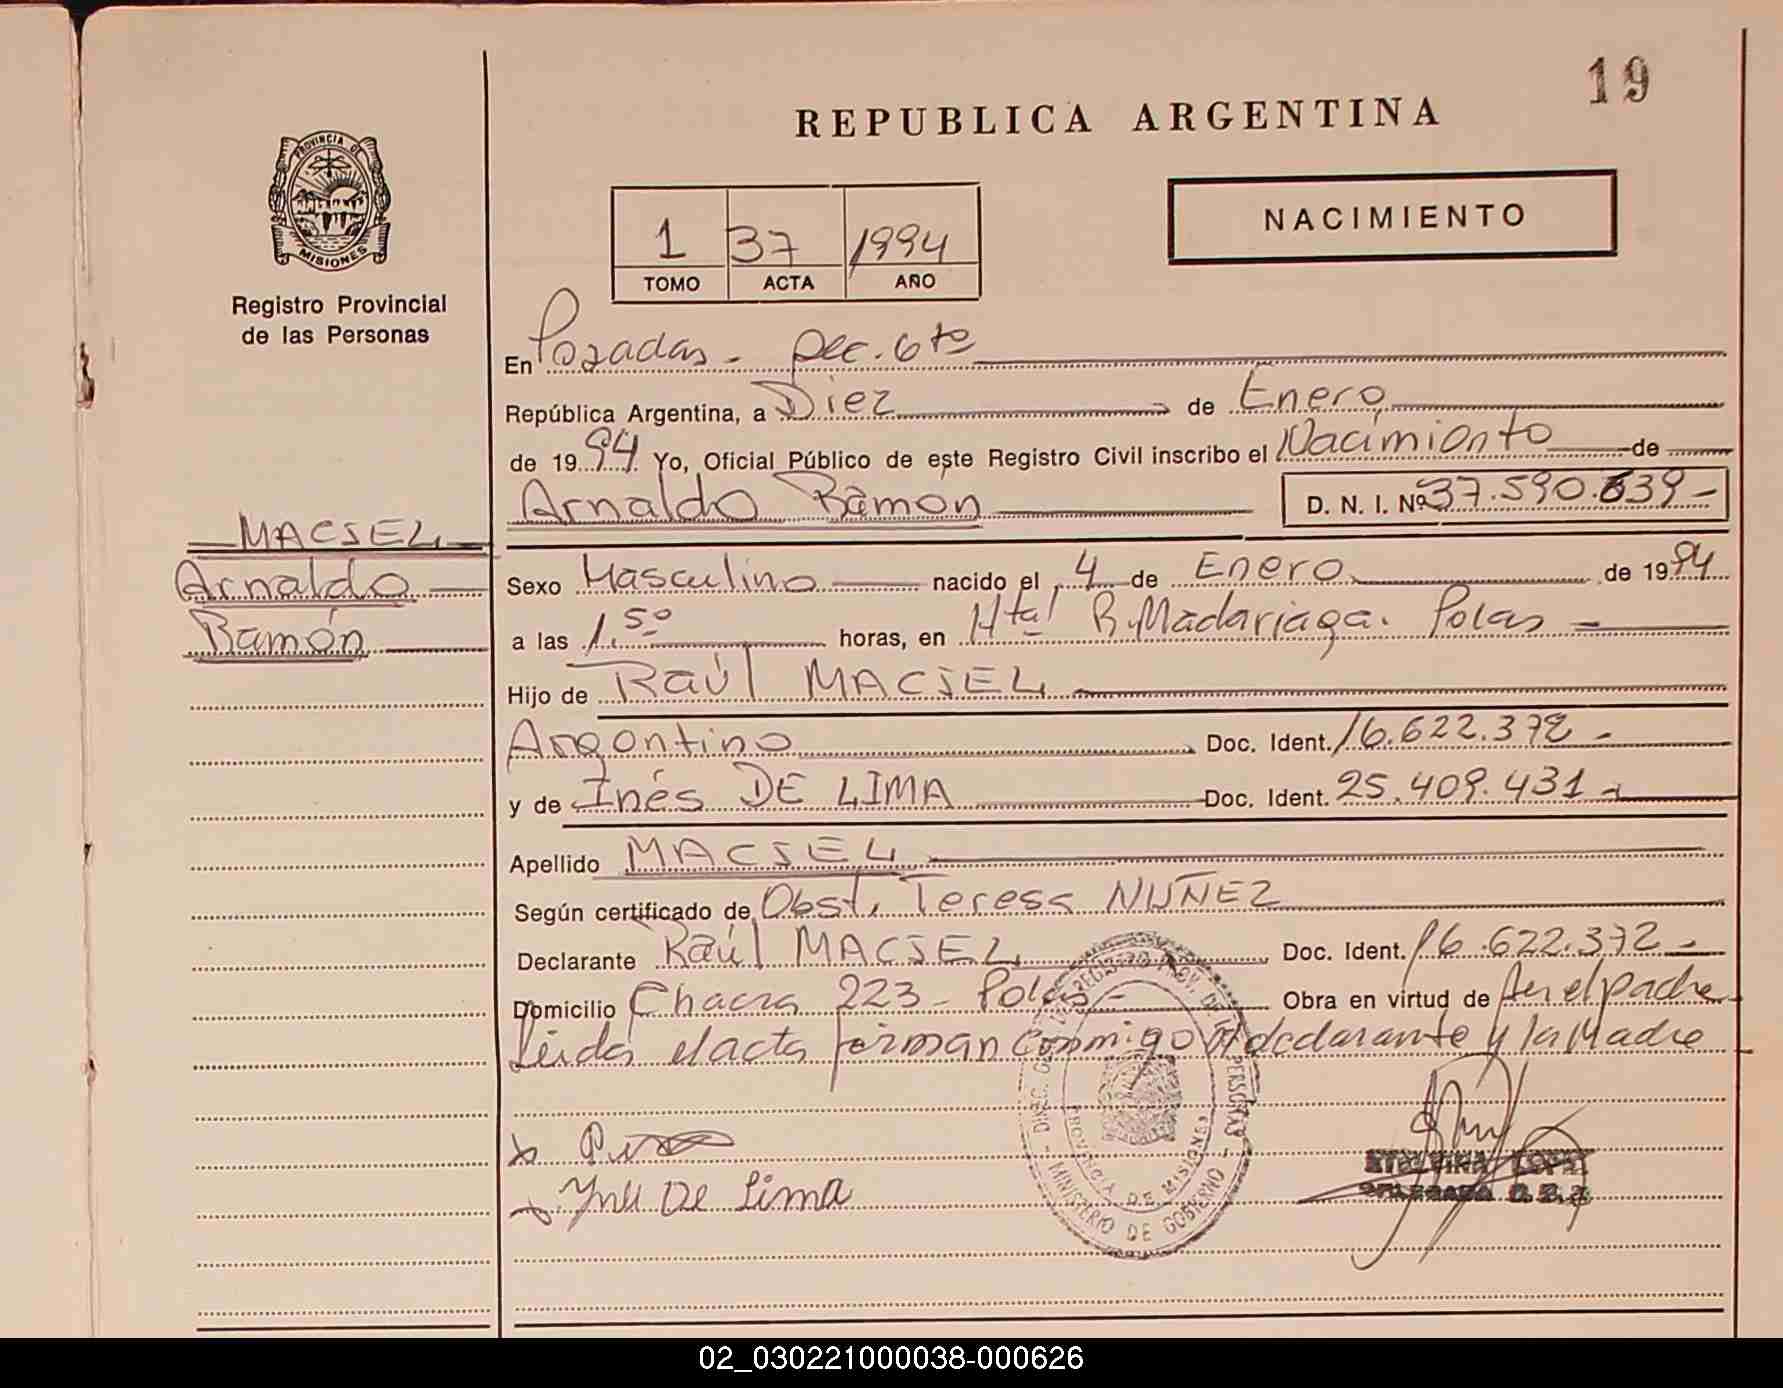 19
REPUBLICA ARGENTINA
PROVINCIA DE
MISIONES
Registro Provincial
de las Personas
1 37 1994
TOMO ACTA AÑO
NACIMIENTO
En Posadas - Sec. 6ta
República Argentina, a Diez de Enero
de 1994 Yo, Oficial Público de este Registro Civil inscribo el Nacimiento de
Arnaldo Ramón D. N. I. Nº 37.590.639-
MACIEL
Arnaldo
Ramón
Sexo Masculino nacido el 4 de Enero de 1994
a las 1.50 horas, en Htal R. Madariaga. Pdas -
Hijo de Raúl MACIEL
Argentino Doc. Ident. 16.622.372 -
y de Inés DE LIMA Doc. Ident. 25.409.431 -
Apellido MACIEL
Según certificado de Obst. Teresa NUÑEZ
Declarante Raúl MACIEL Doc. Ident. 16.622.372 -
Domicilio Chacra 223 - Pdas - Obra en virtud de Ser el padre
Leida el acta firman conmigo el declarante y la Madre
DIREC. GRAL. REGISTRO PROV. DE LAS PERSONAS
PROVINCIA DE MISIONES
MINISTERIO DE GOBIERNO
x
x Ynes De Lima
02_030221000038-000626